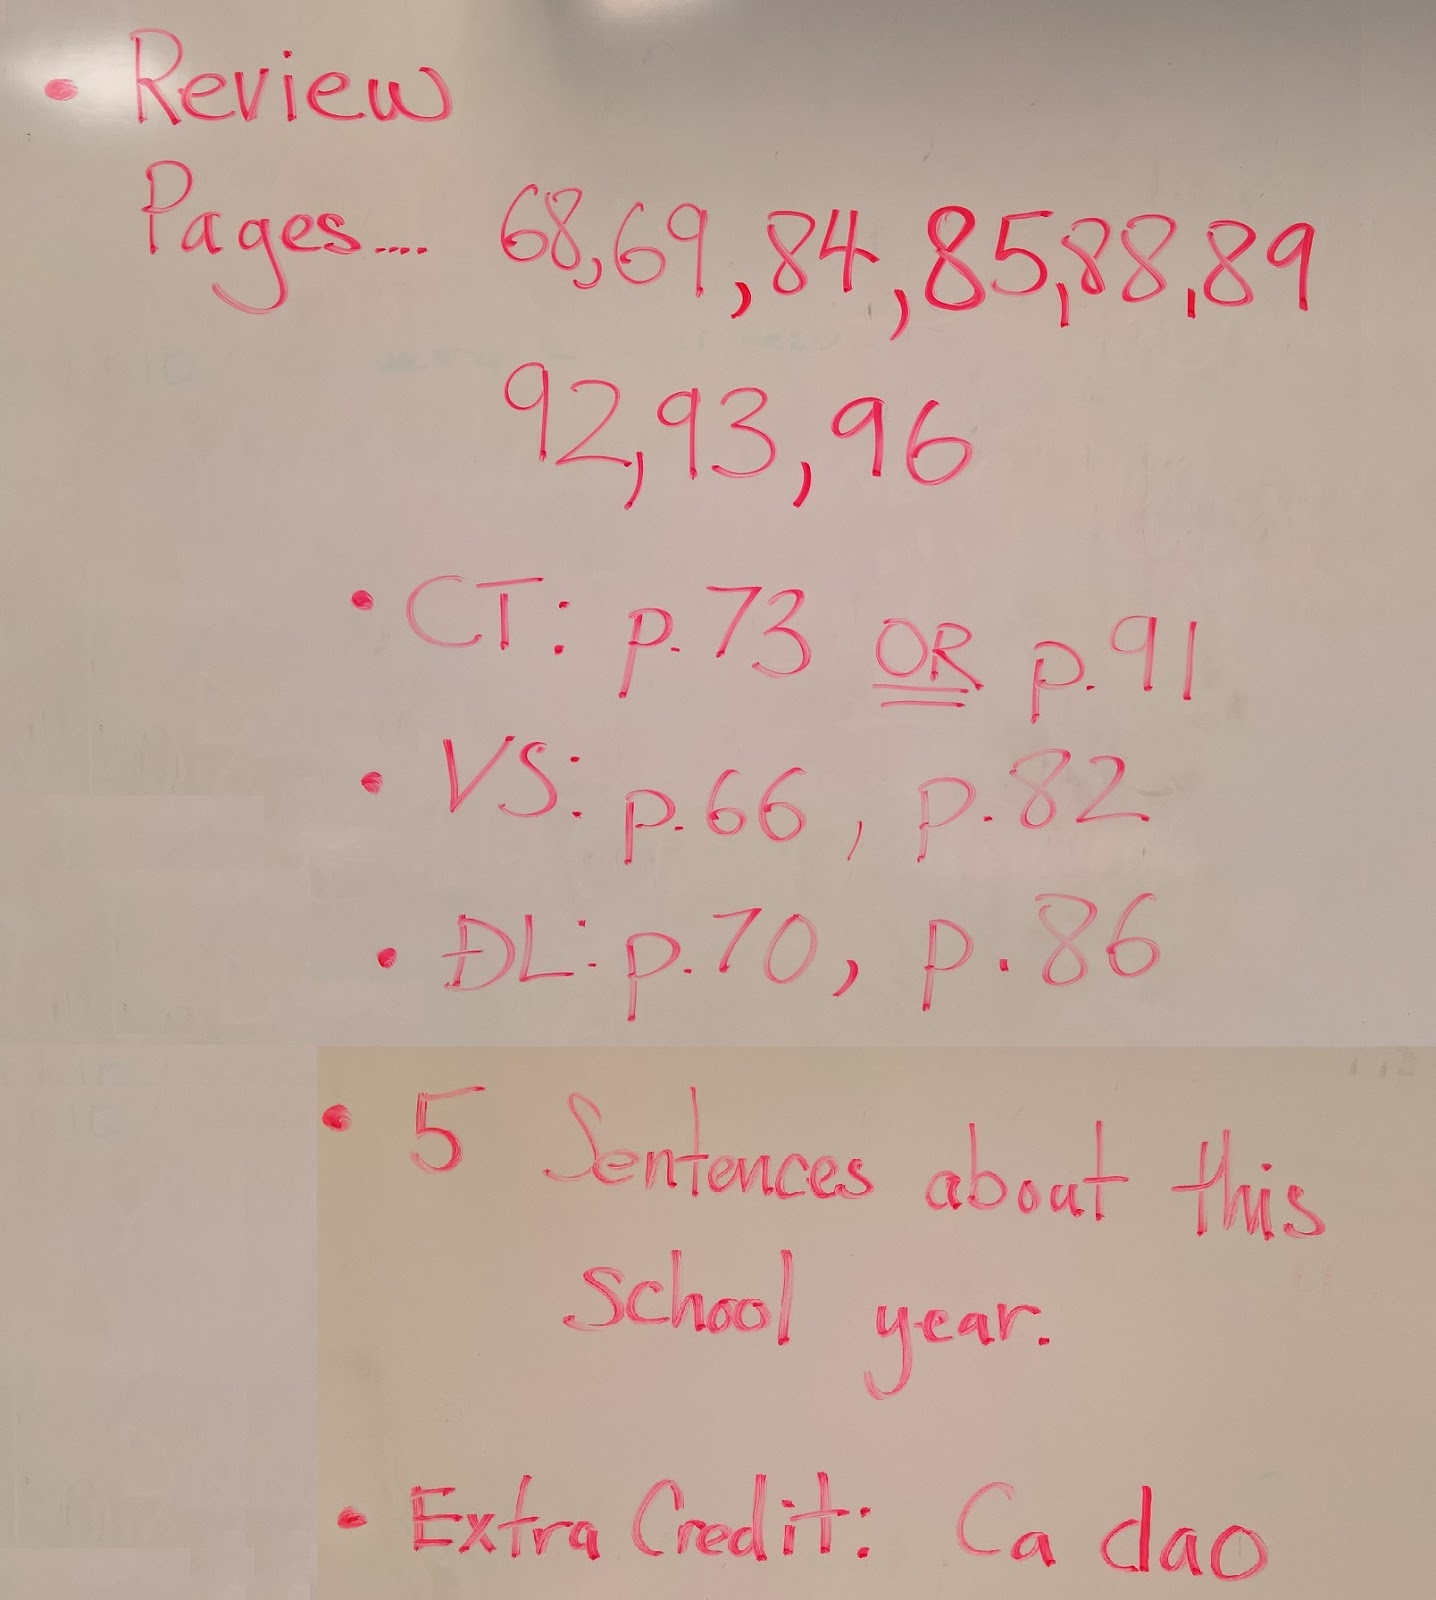 • Review
Pages.... 68,69,84,85,88,89
92,93,96
• CT: p.73 OR p.91
• VS: p.66, p.82
• ĐL: p.70, p.86
• 5 Sentences about this
school year.
• Extra Credit: Ca dao